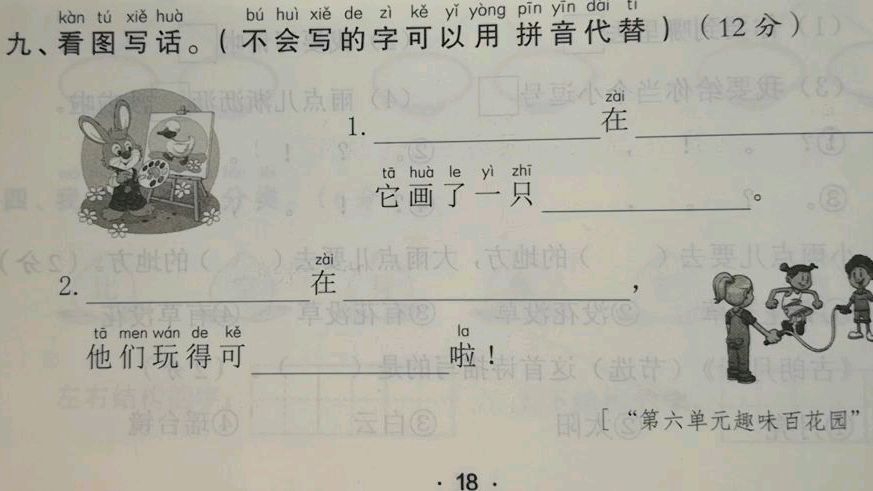 kàn tú xiě huà bú huì xiě de zì kě yǐ yòng pīn yīn dài tì
九、看图写话。(不会写的字可以用拼音代替)(12分)
zài
1. 在
tā huà le yì zhī
它画了一只。
zài
2. 在,
tā men wán de kě la
他们玩得可啦!
[“第六单元趣味百花园”
· 18 ·